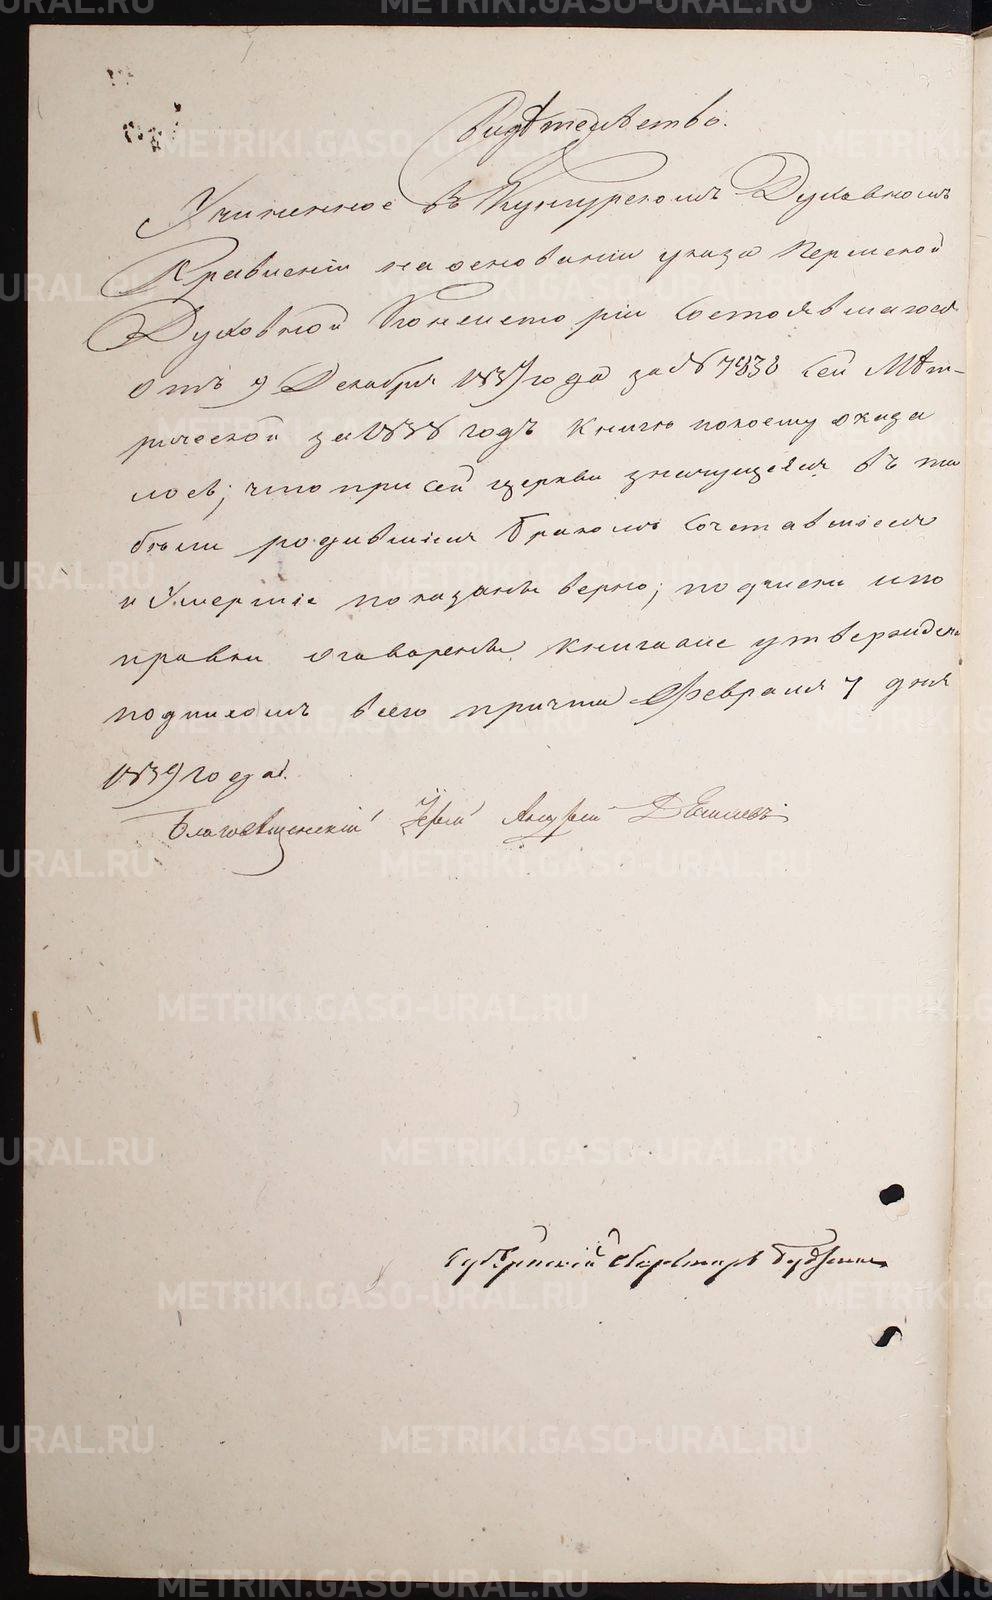 Свидѣтельство.
Учиненное въ Кунгурскомъ Духовномъ
Правленіи на основаніи указа Пермской
Духовной Консисторіи состоявшагося
отъ 9 Декабря 1837 года за № 7838 сей Мѣт-
рической за 1838 годъ книги по коему оказа
лось; что при сей церкви значущіяся въ та
бѣли родившіися бракомъ сочетавшіеся
и Умершіе показаны верно; подчиски и по
правки оговарены, книга же утверждена
подписомъ всего причта Февраля 7 дня
1839 года.
Благовѣщенскій Іерей Андрей
Губернскій Секретарь
METRIKI.GASO-URAL.RU